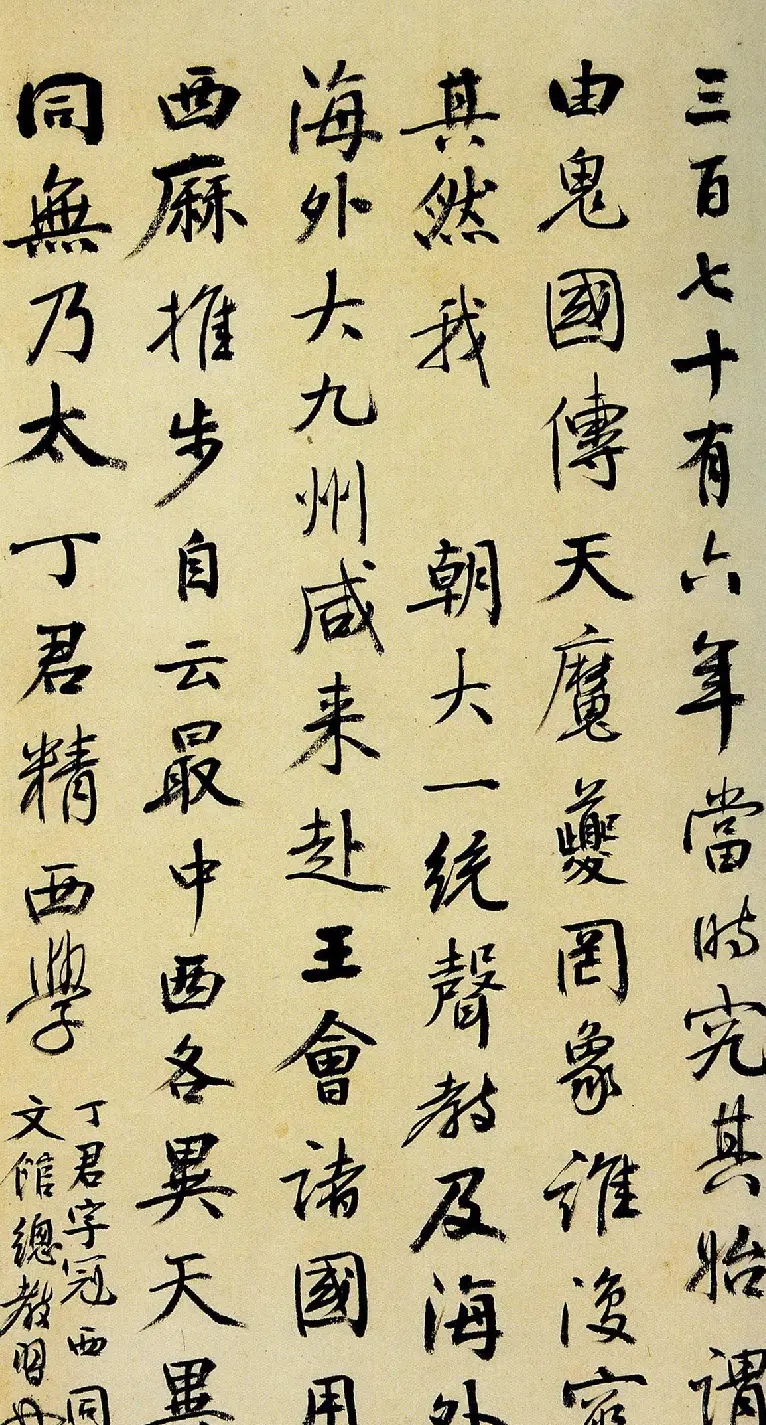 三百七十有六年當時究其始謂
由鬼國傳天魔夔罔象誰復窮
其然我 朝大一統聲教及海外
海外大九州咸来赴王會諸國用
西厤推步自云最中西各異天異
同無乃太丁君精西學
丁君字冠西同
文館總教習也